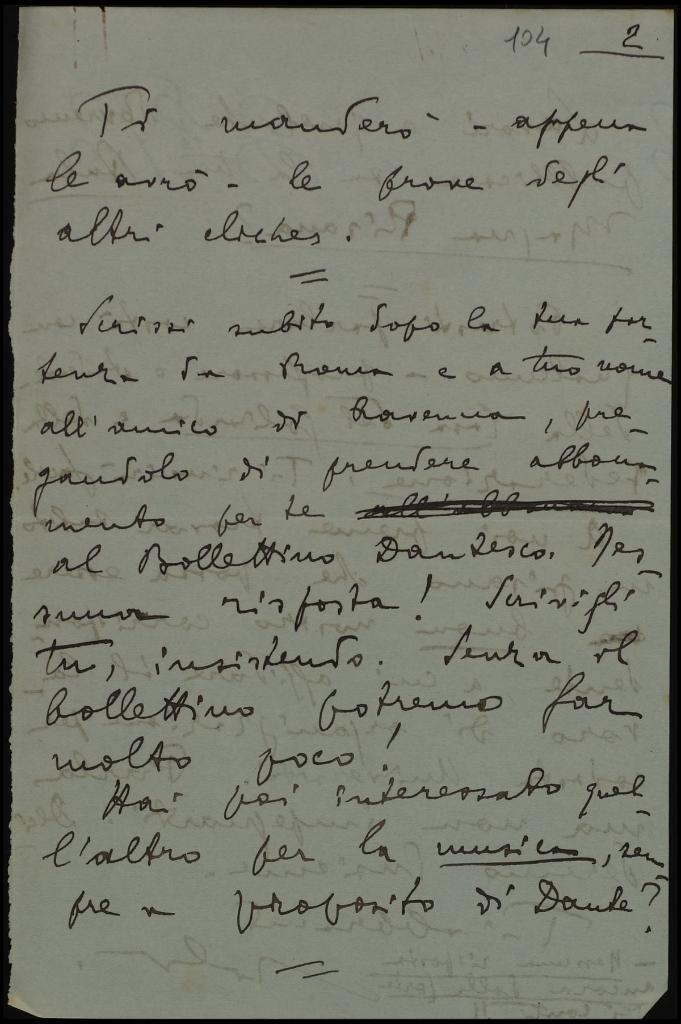 104 2
Ti manderò - appena
le avrò - le prove degli
altri cliches.
Scrissi subito dopo la tua par
tenza da Roma e a tuo nome
all'amico di Ravenna, pre
gandolo di prendere abbona
mento per te
al Bollettino Dantesco. Nes
suna risposta! Scrivigli
tu, insistendo. Senza il
bollettino potremo far
molto poco!
Hai poi interessato quel
l'altro per la musica, sem
pre a proposito di Dante?